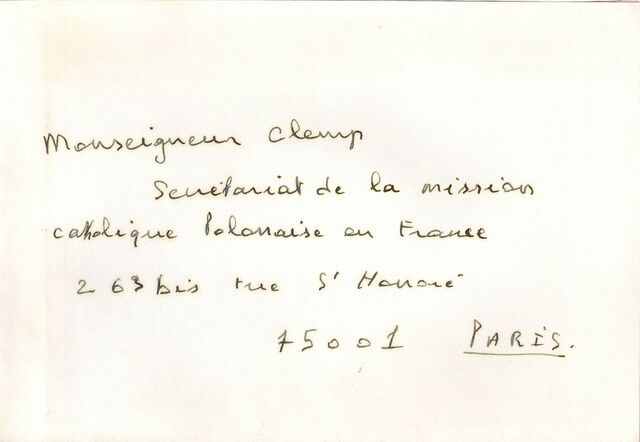 Monseigneur Clemp
Secrétariat de la mission
catholique Polonaise en France
263 bis rue S' Honoré
75001 PARIS.